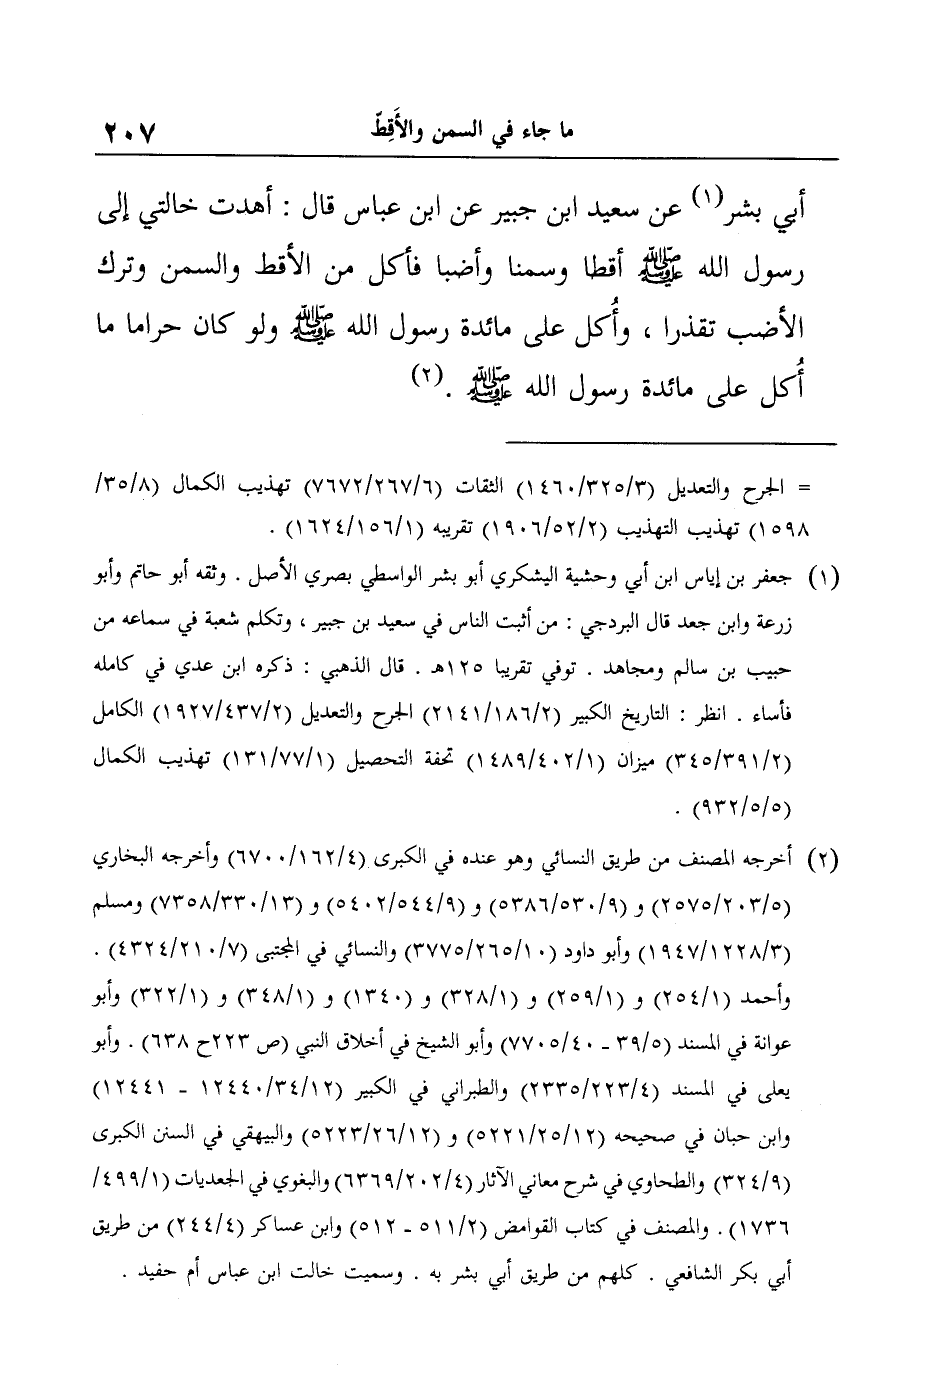 ما جاء في السمن والأَقِطّ ٢٠٧
أبي بشر(١) عن سعيد ابن جبير عن ابن عباس قال : أهدت خالتي إلى
رسول الله ﷺ أقطا وسمنا وأضبا فأكل من الأقط والسمن وترك
الأضب تقذرا ، وأُكل على مائدة رسول الله ﷺ ولو كان حراما ما
أُكل على مائدة رسول الله ﷺ .(٢)
= الجرح والتعديل (١٤٦٠/٣٢٥/٣) الثقات (٧٦٧٢/٢٦٧/٦) تهذيب الكمال (٣٥/٨/
١٥٩٨) تهذيب التهذيب (١٩٠٦/٥٢/٢) تقريبه (١٦٢٤/١٥٦/١) .
(١) جعفر بن إياس ابن أبي وحشية اليشكري أبو بشر الواسطي بصري الأصل . وثقه أبو حاتم وأبو
زرعة وابن جعد قال البردجي : من أثبت الناس في سعيد بن جبير ، وتكلم شعبة في سماعه من
حبيب بن سالم ومجاهد . توفي تقريبا ١٢٥هـ . قال الذهبي : ذكره ابن عدي في كامله
فأساء . انظر : التاريخ الكبير (٢١٤١/١٨٦/٢) الجرح والتعديل (١٩٢٧/٤٣٧/٢) الكامل
(٣٤٥/٣٩١/٢) ميزان (١٤٨٩/٤٠٢/١) تحفة التحصيل (١٣١/٧٧/١) تهذيب الكمال
(٩٣٢/٥/٥) .
(٢) أخرجه المصنف من طريق النسائي وهو عنده في الكبرى (٦٧٠٠/١٦٢/٤) وأخرجه البخاري
(٢٥٧٥/٢٠٣/٥) و (٥٣٨٦/٥٣٠/٩) و (٥٤٠٢/٥٤٤/٩) و (٧٣٥٨/٣٣٠/١٣) ومسلم
(١٩٤٧/١٢٢٨/٣) وأبو داود (٣٧٧٥/٢٦٥/١٠) والنسائي في المجتبى (٤٣٢٤/٢١٠/٧) .
وأحمد (٢٥٤/١) و (٢٥٩/١) و (٣٢٨/١) و (١٣٤٠) و (٣٤٨/١) و (٣٢٢/١) وأبو
عوانة في المسند (٣٩/٥ ـ ٧٧٠٥/٤٠) وأبو الشيخ في أخلاق النبي (ص ٢٢٣ح ٦٣٨) . وأبو
يعلى في المسند (٢٣٣٥/٢٢٣/٤) والطبراني في الكبير (١٢٤٤٠/٣٤/١٢ ـ ١٢٤٤١)
وابن حبان في صحيحه (٥٢٢١/٢٥/١٢) و (٥٢٢٣/٢٦/١٢) والبيهقي في السنن الكبرى
(٣٢٤/٩) والطحاوي في شرح معاني الآثار (٦٣٦٩/٢٠٢/٤) والبغوي في الجعديات (٤٩٩/١/
١٧٣٦) . والمصنف في كتاب القوامض (٥١١/٢ ـ ٥١٢) وابن عساكر (٢٤٤/٤) من طريق
أبي بكر الشافعي . كلهم من طريق أبي بشر به . وسميت خالت ابن عباس أم حفيد .